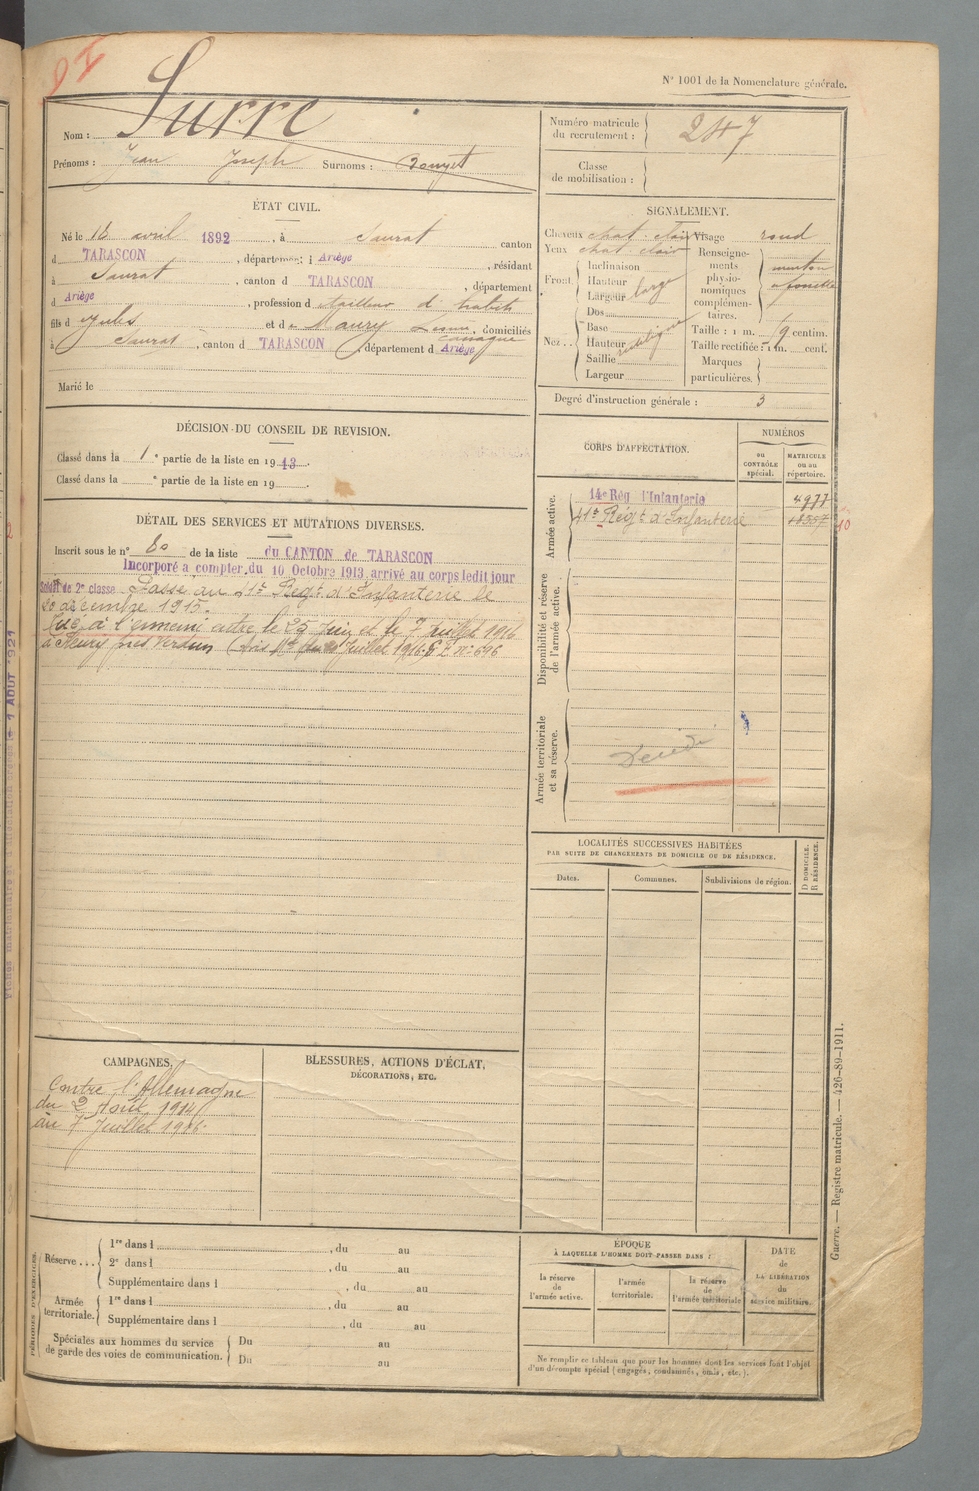 N° 1001 de la Nomenclature générale.
Surre
Nom :
Prénoms : Jean Joseph Surnoms : Douget
Numéro matricule du recrutement : 247
Classe de mobilisation :
ÉTAT CIVIL.
Né le 18 avril 1892, à Saurat canton
d TARASCON, département d Ariège, résidant
à Saurat, canton d TARASCON, département
d Ariège, profession d tailleur d'habits
fils d Jules et d Maury, domiciliés
à Saurat, canton d TARASCON, département d Ariège
Marié le
SIGNALEMENT.
Cheveux chat. clair Visage rond
Yeux chat. clair
Renseignements physionomiques complémentaires. menton à fossette
Front. Inclinaison
Hauteur
Largeur large
Nez.. Dos
Base
Hauteur
Saillie
Largeur
Taille : 1 m. centim.
Taille rectifiée : 1 m. cent.
Marques particulières.
Degré d'instruction générale : 3
DÉCISION DU CONSEIL DE REVISION.
Classé dans la 1e partie de la liste en 1913.
Classé dans la e partie de la liste en 19
DÉTAIL DES SERVICES ET MUTATIONS DIVERSES.
Inscrit sous le n° 80 de la liste du CANTON de TARASCON
Incorporé à compter du 10 Octobre 1913 arrivé au corps ledit jour
Soldat de 2e classe Passé au 41e Régt d'Infanterie le
20 décembre 1915.
Tué à l'ennemi entre le 25 Juin et le 7 Juillet 1916
à Fleury près Verdun (avis Juillet 1916 n° 696
CORPS D'AFFECTATION.
NUMÉROS
au CONTRÔLE spécial.
MATRICULE ou au répertoire.
Armée active.
14e Rég d'Infanterie 4977
41e Régt d'Infanterie
10
Disponibilité et réserve de l'armée active.
Armée territoriale et sa réserve.
Décédé
LOCALITÉS SUCCESSIVES HABITÉES
PAR SUITE DE CHANGEMENTS DE DOMICILE OU DE RÉSIDENCE.
Dates.
Communes.
Subdivisions de région.
D DOMICILE.
R RÉSIDENCE.
CAMPAGNES.
Contre l'Allemagne
du 2 Août 1914
au 7 Juillet 1916.
BLESSURES, ACTIONS D'ÉCLAT,
DÉCORATIONS, ETC.
PÉRIODES D'EXERCICES.
Réserve ... 1re dans l , du au
2e dans l , du au
Supplémentaire dans l , du au
Armée territoriale. 1re dans l , du au
Supplémentaire dans l , du au
Spéciales aux hommes du service de garde des voies de communication. Du au
Du au
ÉPOQUE
À LAQUELLE L'HOMME DOIT PASSER DANS :
la réserve de l'armée active.
l'armée territoriale.
la réserve de l'armée territoriale
DATE de LA LIBÉRATION du service militaire.
Ne remplir ce tableau que pour les hommes dont les services font l'objet
d'un décompte spécial (engagés, condamnés, omis, etc.).
Guerre. — Registre matricule. — 426-89-1911.